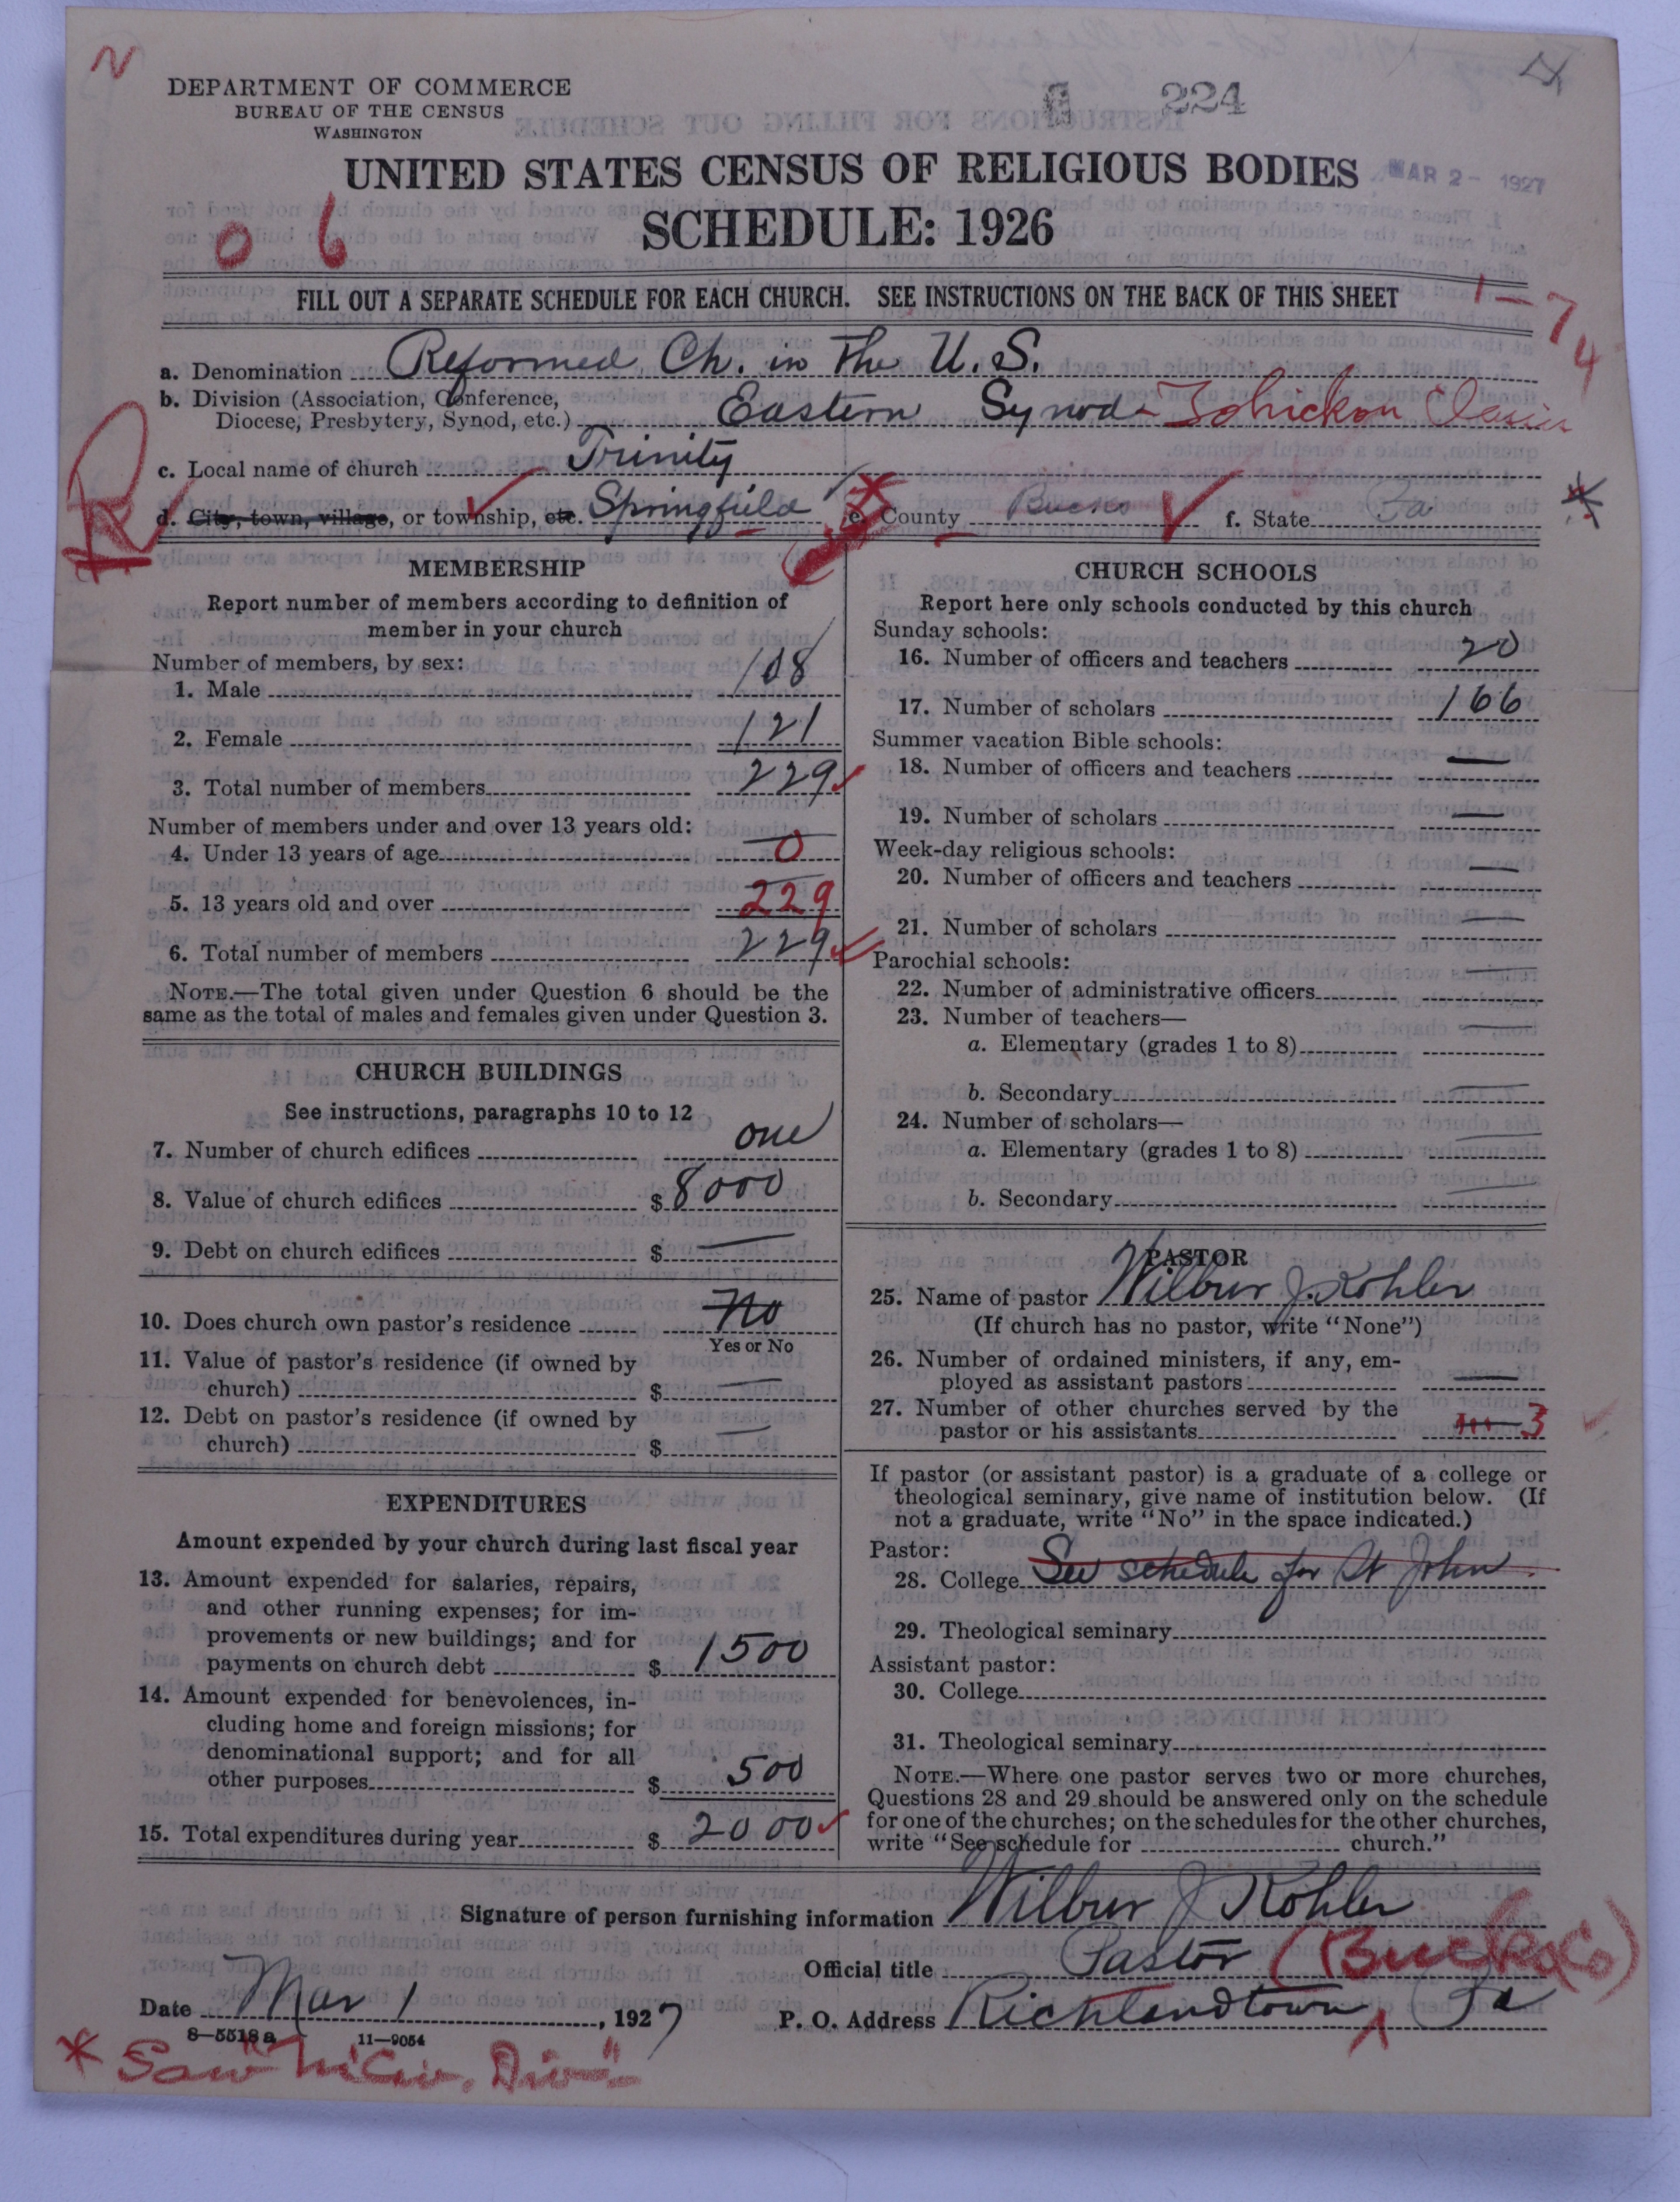 N
DEPARTMENT OF COMMERCE
BUREAU OF THE CENSUS
WASHINGTON
224
UNITED STATES CENSUS OF RELIGIOUS BODIES
MAR 2 - 1927
SCHEDULE: 1926
0 6
FILL OUT A SEPARATE SCHEDULE FOR EACH CHURCH. SEE INSTRUCTIONS ON THE BACK OF THIS SHEET
1-74
a. Denomination Reformed Ch. in the U.S.
b. Division (Association, Conference,
Diocese, Presbytery, Synod, etc.) Eastern Synod - Tohickon Classis
c. Local name of church Trinity
d. City, town, village, or township, etc. Springfield e. County Bucks f. State Pa *
R
MEMBERSHIP
Report number of members according to definition of
member in your church
Number of members, by sex:
1. Male 108
2. Female 121
3. Total number of members 229
Number of members under and over 13 years old:
4. Under 13 years of age 0
5. 13 years old and over 229
6. Total number of members 229
NOTE.—The total given under Question 6 should be the
same as the total of males and females given under Question 3.
CHURCH BUILDINGS
See instructions, paragraphs 10 to 12
7. Number of church edifices one
8. Value of church edifices $ 8000
9. Debt on church edifices $ —
10. Does church own pastor's residence No
Yes or No
11. Value of pastor's residence (if owned by
church) $ —
12. Debt on pastor's residence (if owned by
church) $ —
EXPENDITURES
Amount expended by your church during last fiscal year
13. Amount expended for salaries, repairs,
and other running expenses; for im-
provements or new buildings; and for
payments on church debt $ 1500
14. Amount expended for benevolences, in-
cluding home and foreign missions; for
denominational support; and for all
other purposes $ 500
15. Total expenditures during year $ 2000
CHURCH SCHOOLS
Report here only schools conducted by this church
Sunday schools:
16. Number of officers and teachers 20
17. Number of scholars 166
Summer vacation Bible schools:
18. Number of officers and teachers —
19. Number of scholars —
Week-day religious schools:
20. Number of officers and teachers —
21. Number of scholars —
Parochial schools:
22. Number of administrative officers —
23. Number of teachers—
a. Elementary (grades 1 to 8) —
b. Secondary —
24. Number of scholars—
a. Elementary (grades 1 to 8) —
b. Secondary —
PASTOR
25. Name of pastor Wilbur J. Kohler
(If church has no pastor, write "None")
26. Number of ordained ministers, if any, em-
ployed as assistant pastors —
27. Number of other churches served by the
pastor or his assistants 3
If pastor (or assistant pastor) is a graduate of a college or
theological seminary, give name of institution below. (If
not a graduate, write "No" in the space indicated.)
Pastor:
28. College See schedule for St John
29. Theological seminary
Assistant pastor:
30. College
31. Theological seminary
NOTE.—Where one pastor serves two or more churches,
Questions 28 and 29 should be answered only on the schedule
for one of the churches; on the schedules for the other churches,
write "See schedule for church."
Signature of person furnishing information Wilbur J Kohler
Official title Pastor (Bucks Co)
Date Mar 1, 1927 P. O. Address Richlandtown, Pa
8—5518a 11—9054
* Saw "M Civ. Div."